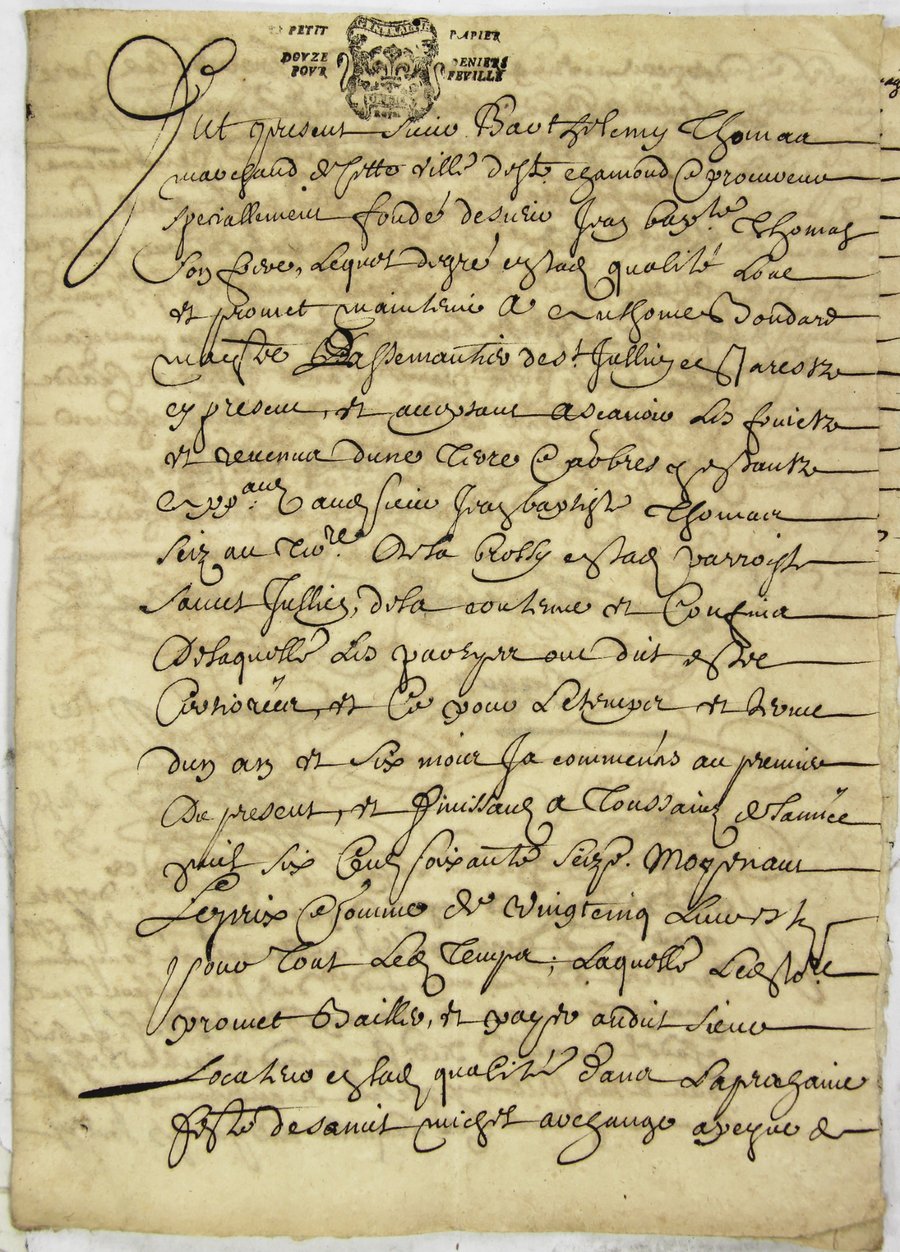 PETIT PAPIER
DOVZE DENIERS
POVR FEVILLE
GENERALITE
Fut present sieur Barthelemy Thomas
marchand de cette ville de St. chamond procureur
speciallement fondé de sieur Jean bapte Thomas
son frere, Lequel de gré esad qualité Loue
et promet maintenir a Anthoine Bondard
maistre Passemantier de st Jullien en Jarestz
cy present, et acceptant ascavoir les fruictz
et revenus dune Terre arbres y estantz
app.ant aud sieur Jean baptiste Thomas
seiz au Terre. de la brossy esad parroisse
saint Jullien, de la contenue et Confins
de laquelle les partyes ont dit estre
Certioréés, et Ce pour le temps et terme
dun an et six mois Ja commencés au premier
du present, et finissant a Toussainz de lannéé
mil six Centz soixante seize. Moyenant
Le prix et somme de vingtcinq Livres tz
pour Tout Led Temps; Laquelle Led
promet Bailler, et payer audit sieur
Locateur esad qualité dans La prochaine
feste de saint michel archange a peyne de